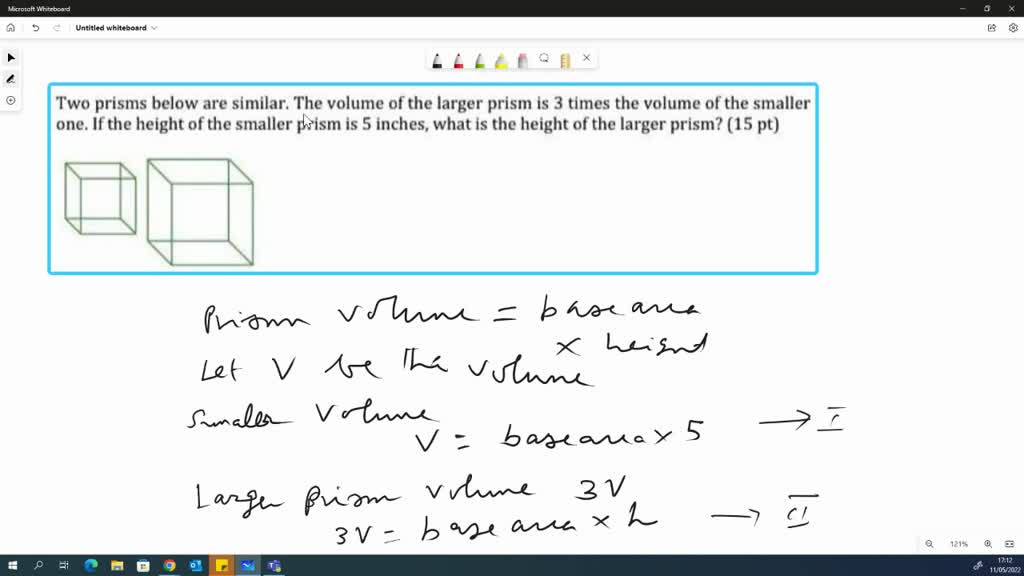 Microsoft Whiteboard
Untitled whiteboard
Two prisms below are similar. The volume of the larger prism is 3 times the volume of the smaller
one. If the height of the smaller prism is 5 inches, what is the height of the larger prism? (15 pt)
Prism volume = base area
x height
Let V be the volume
Smaller volume
V = base area x 5 → I
Larger prism volume 3V
3V = base area x h → II
121%
17:12
11/05/2022